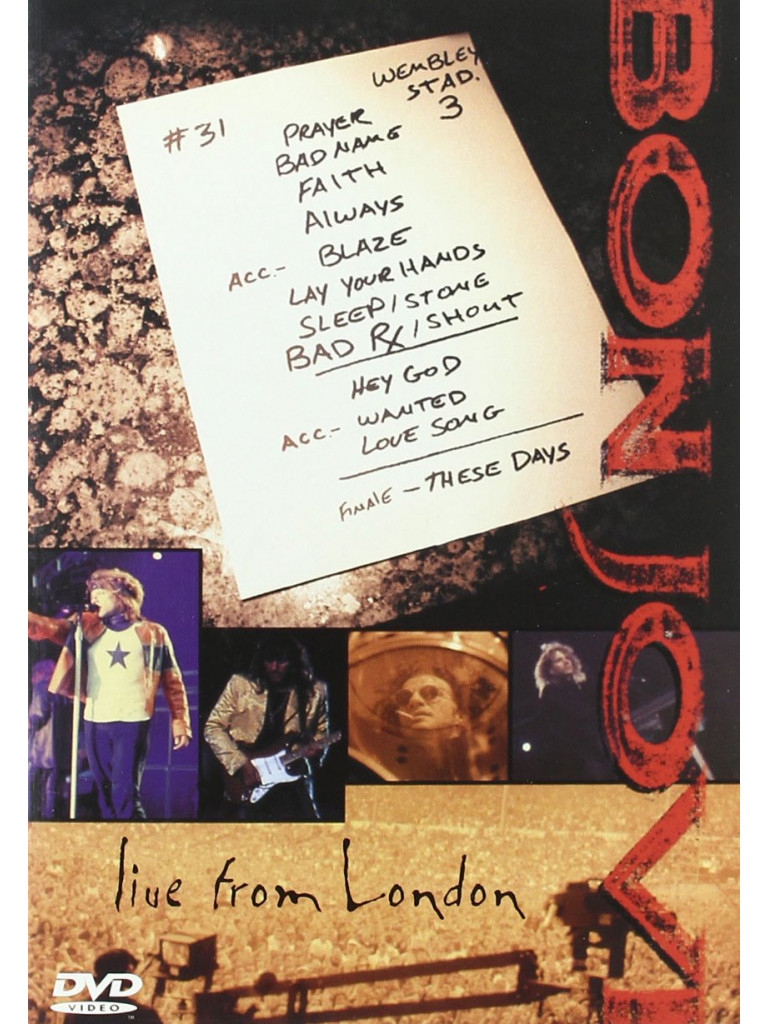 WEMBLEY
STAD.
3
#31 PRAYER
BAD NAME
FAITH
AlWAYS
ACC.- BLAZE
LAY YOUR HANDS
SLEEP/STONE
BAD RX/SHOUT
HEY GOD
ACC.- WANTED
LOVE SONG
FINALE - THESE DAYS
BON JOVI
live from London
DVD
VIDEO